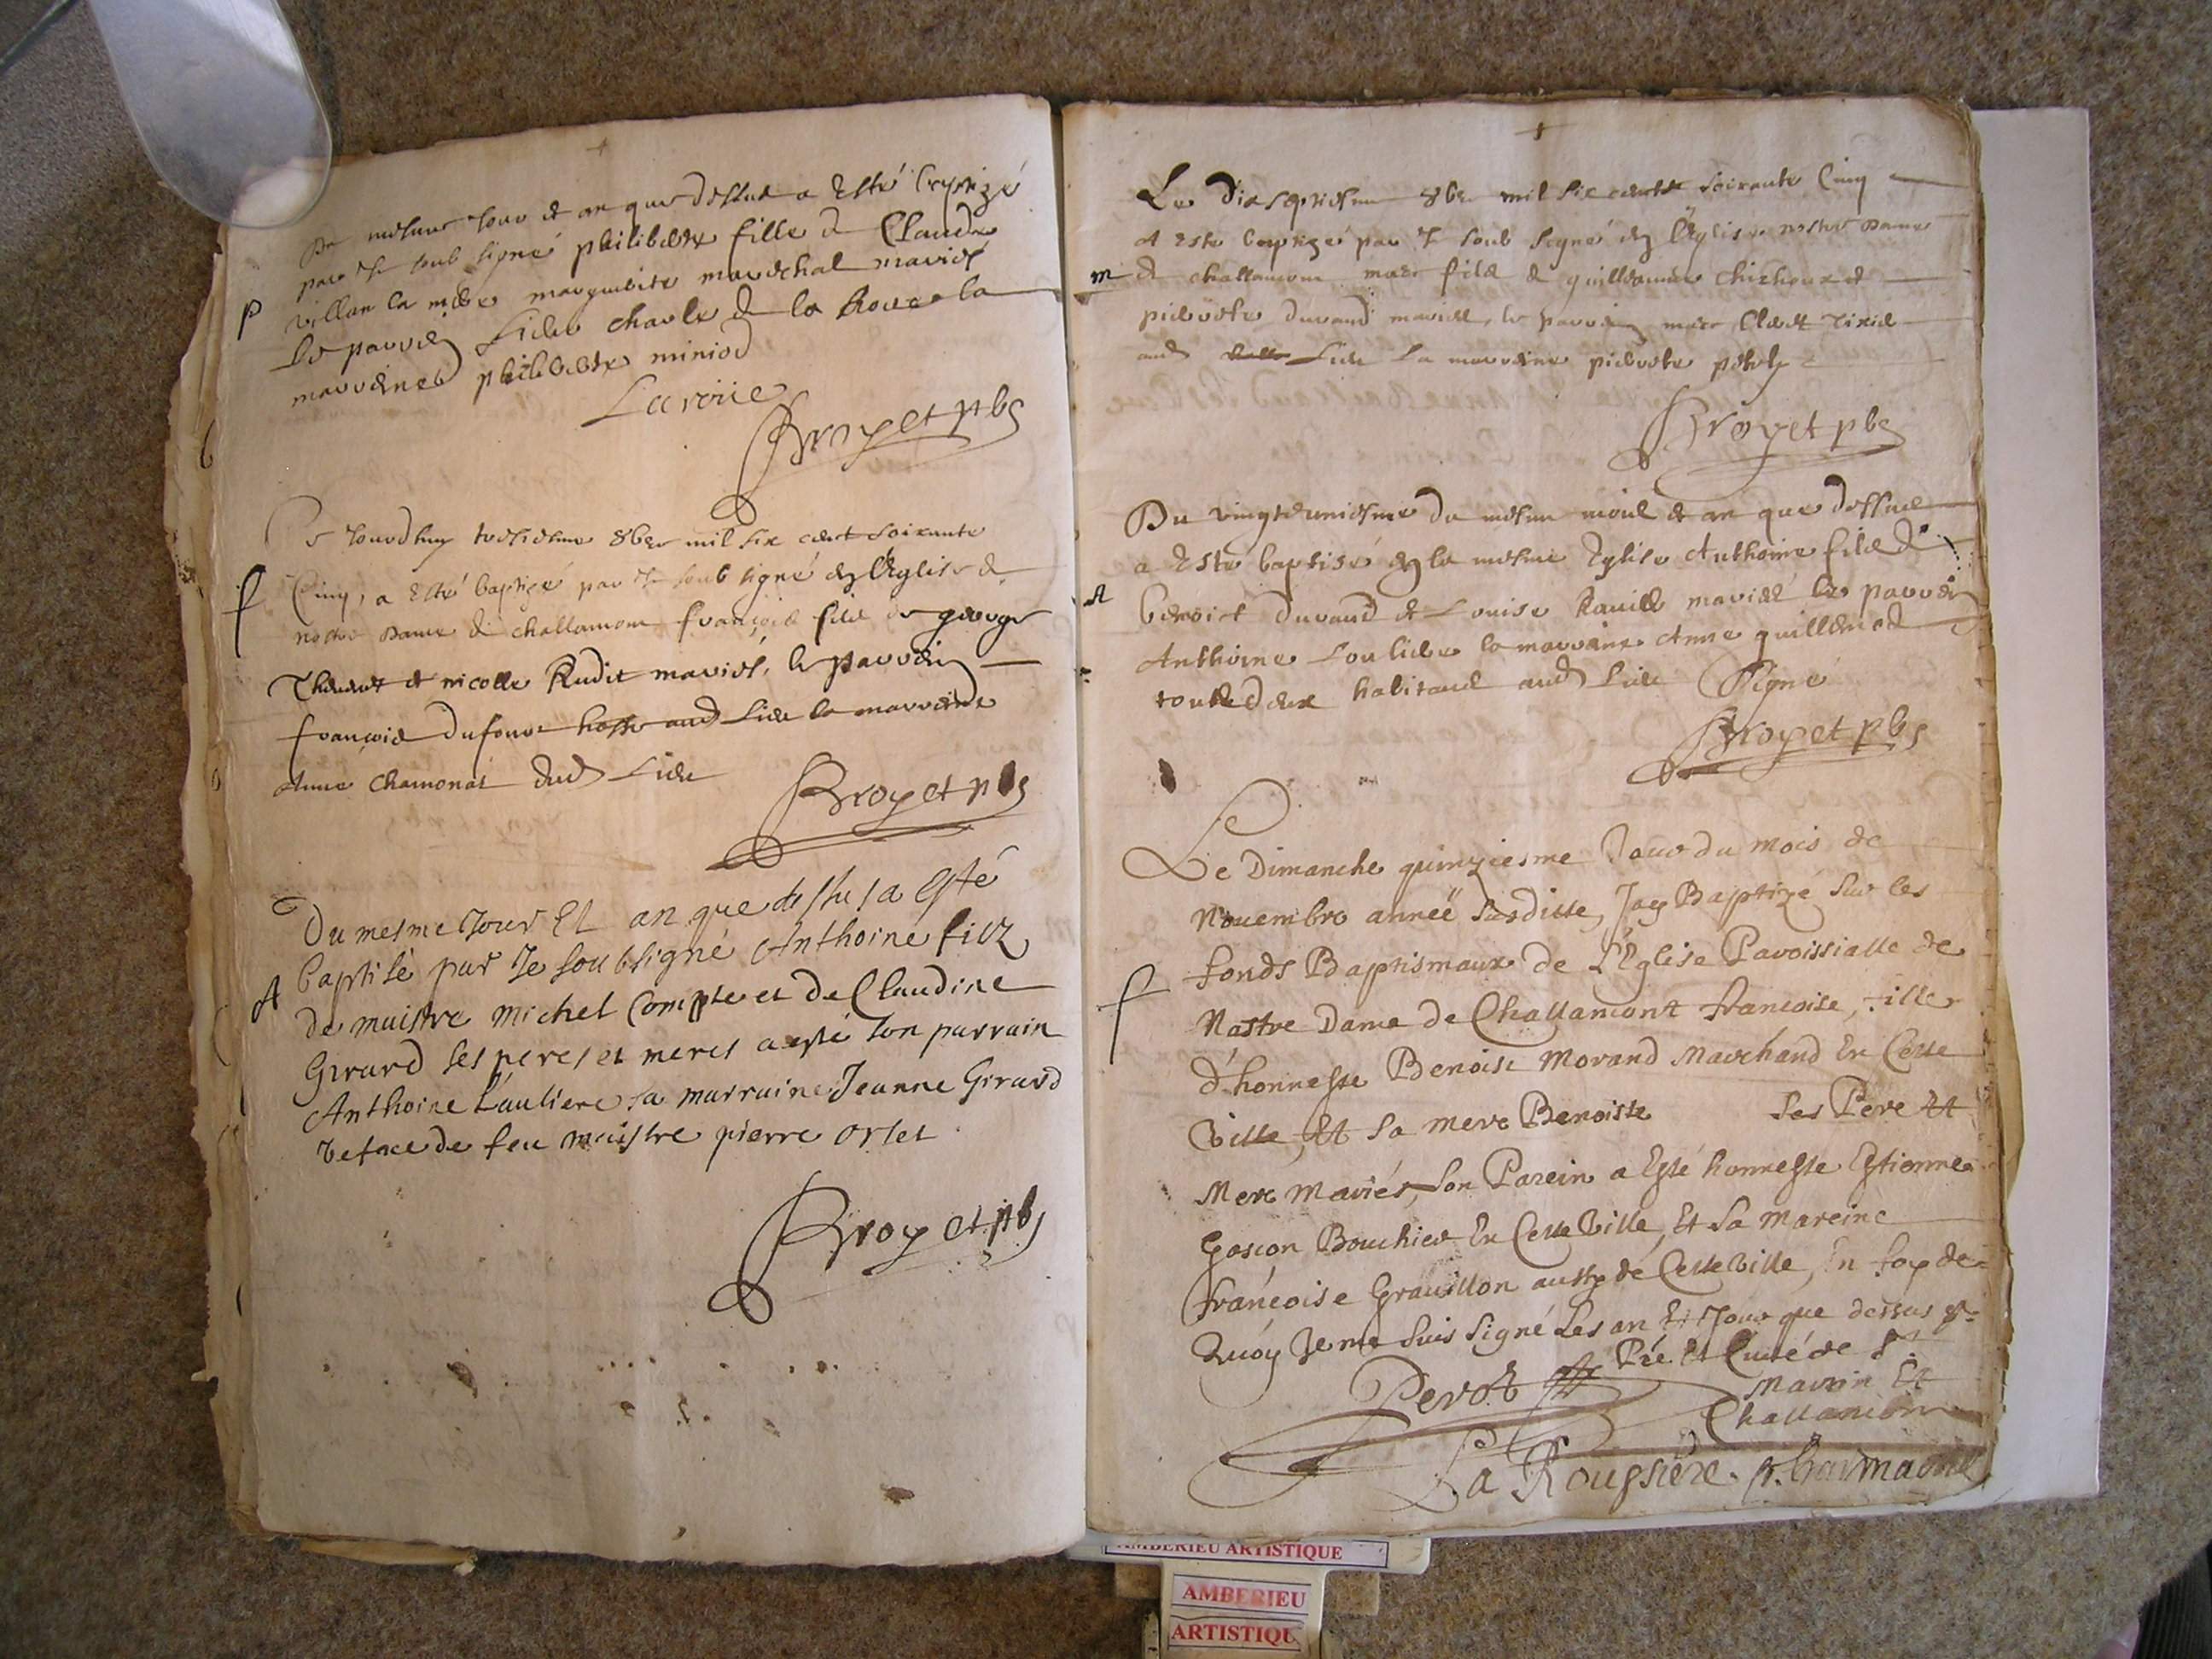 Du mesme Jour et an que dessus a esté baptizé
par Je soub signé philiberte fille de Claude
P
villan la mere marguerite mareschal mariés
Le parrein sieur charle de la Roue la
marreine philiberte
Laroüe
Broyet pbr
Ce Jourdhuy 8bre mil six cent soixante
Cinq, a esté baptizé par Je soub signé en l'Eglise de
f
nostre Dame de challamon françois filz de george
et nicolle Rudit mariés, le parrein
françois dufour hoste aud lieu la marreine
Anne chamonat dud lieu
Broyet pbr
Du mesme Jour Et an que dessus a esté
baptisé par Je soubsigné Anthoine filz
A
de maistre michel Compte et de Claudine
Girard ses peres et meres a esté son parrain
Anthoine Lauliere sa marraine Jeanne Girard
vefve de feu maistre pierre orset
Broyet pbr
Le dixseptiesme 8bre mil six cents soixante Cinq
A esté baptizé par Je soub signé en l'Eglise nostre Dame
m
de challamon marc filz de guillaume et
pierrette durand mariés, le parrein marc
aud lieu la marreine pierrette
Broyet pbr
Du vingteuniesme du mesme mois et an que dessus
a esté baptisé en la mesme Eglise Anthoine filz de
A
benoict durand et Louise mariés le parrein
Anthoine Louliere la marraine Anne guillemet
toutts deux habitans aud lieu Signé
Broyet pbr
Le Dimanche quinziesme Jour du mois de
Nouembre année susditte, Jay Baptizé sur les
fonds Baptismaux de L'Eglise Paroissialle de
f
Nostre Dame de Challamont francoise, fille
d'honneste Benoist Morand Marchand En Cette
Ville, Et sa mere Benoiste ses Pere Et
Mere Mariés, Son Parein a Esté honneste Estienne
Gascon Bouchier En Cette Ville, Et sa Mareine
françoise Grauillon aussy de Cette Ville, En foy de
Quoy Je me suis signé Les an Et Jour que dessus
Perot Pre Et Curé de St
Martin Et
Challamont
La Roussiere
AMBERIEU ARTISTIQUE
AMBERIEU
ARTISTIQU